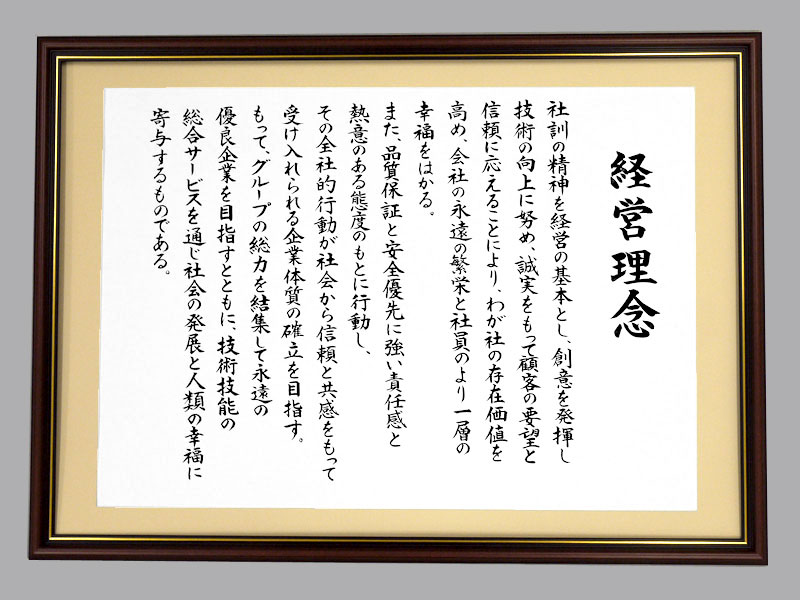 経営理念
社訓の精神を経営の基本とし、創意を発揮し
技術の向上に努め、誠実をもって顧客の要望と
信頼に応えることにより、わが社の存在価値を
高め、会社の永遠の繁栄と社員のより一層の
幸福をはかる。
また、品質保証と安全優先に強い責任感と
熱意のある態度のもとに行動し、
その全社的行動が社会から信頼と共感をもって
受け入れられる企業体質の確立を目指す。
もって、グループの総力を結集して永遠の
優良企業を目指すとともに、技術技能の
総合サービスを通じ社会の発展と人類の幸福に
寄与するものである。